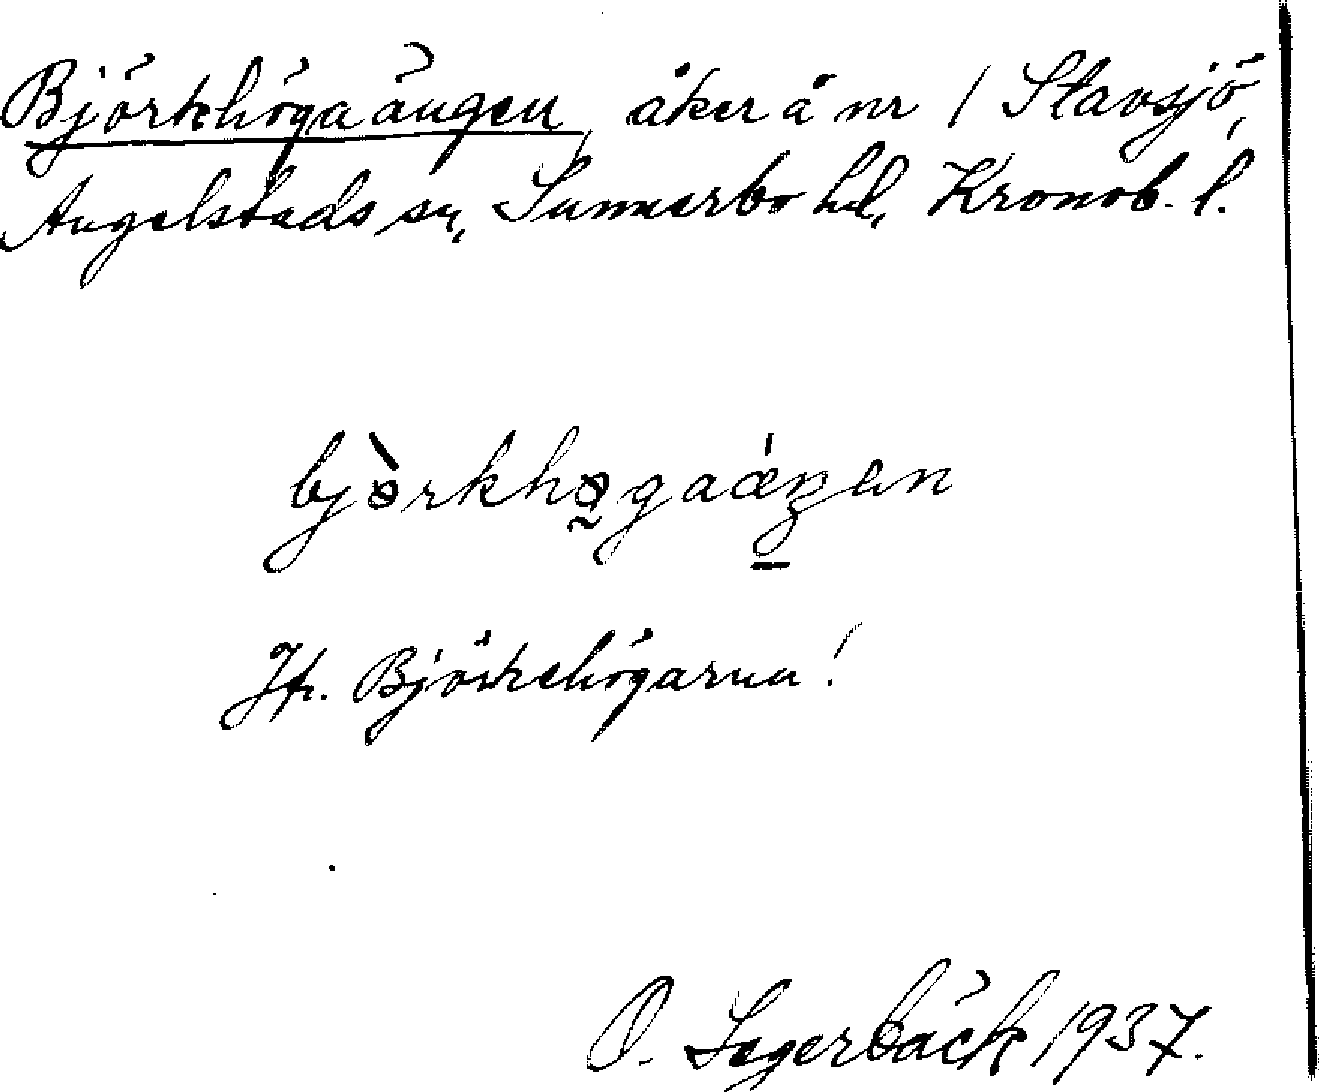 Björkhögaängen, åker å nr 1 Stavsjö,
Angelstads sn, Sunnerbo hd, Kronob. l.
bjòrkhøgaǽŋən
Jfr. Björkehögarna!
O. Segerbäck 1937.